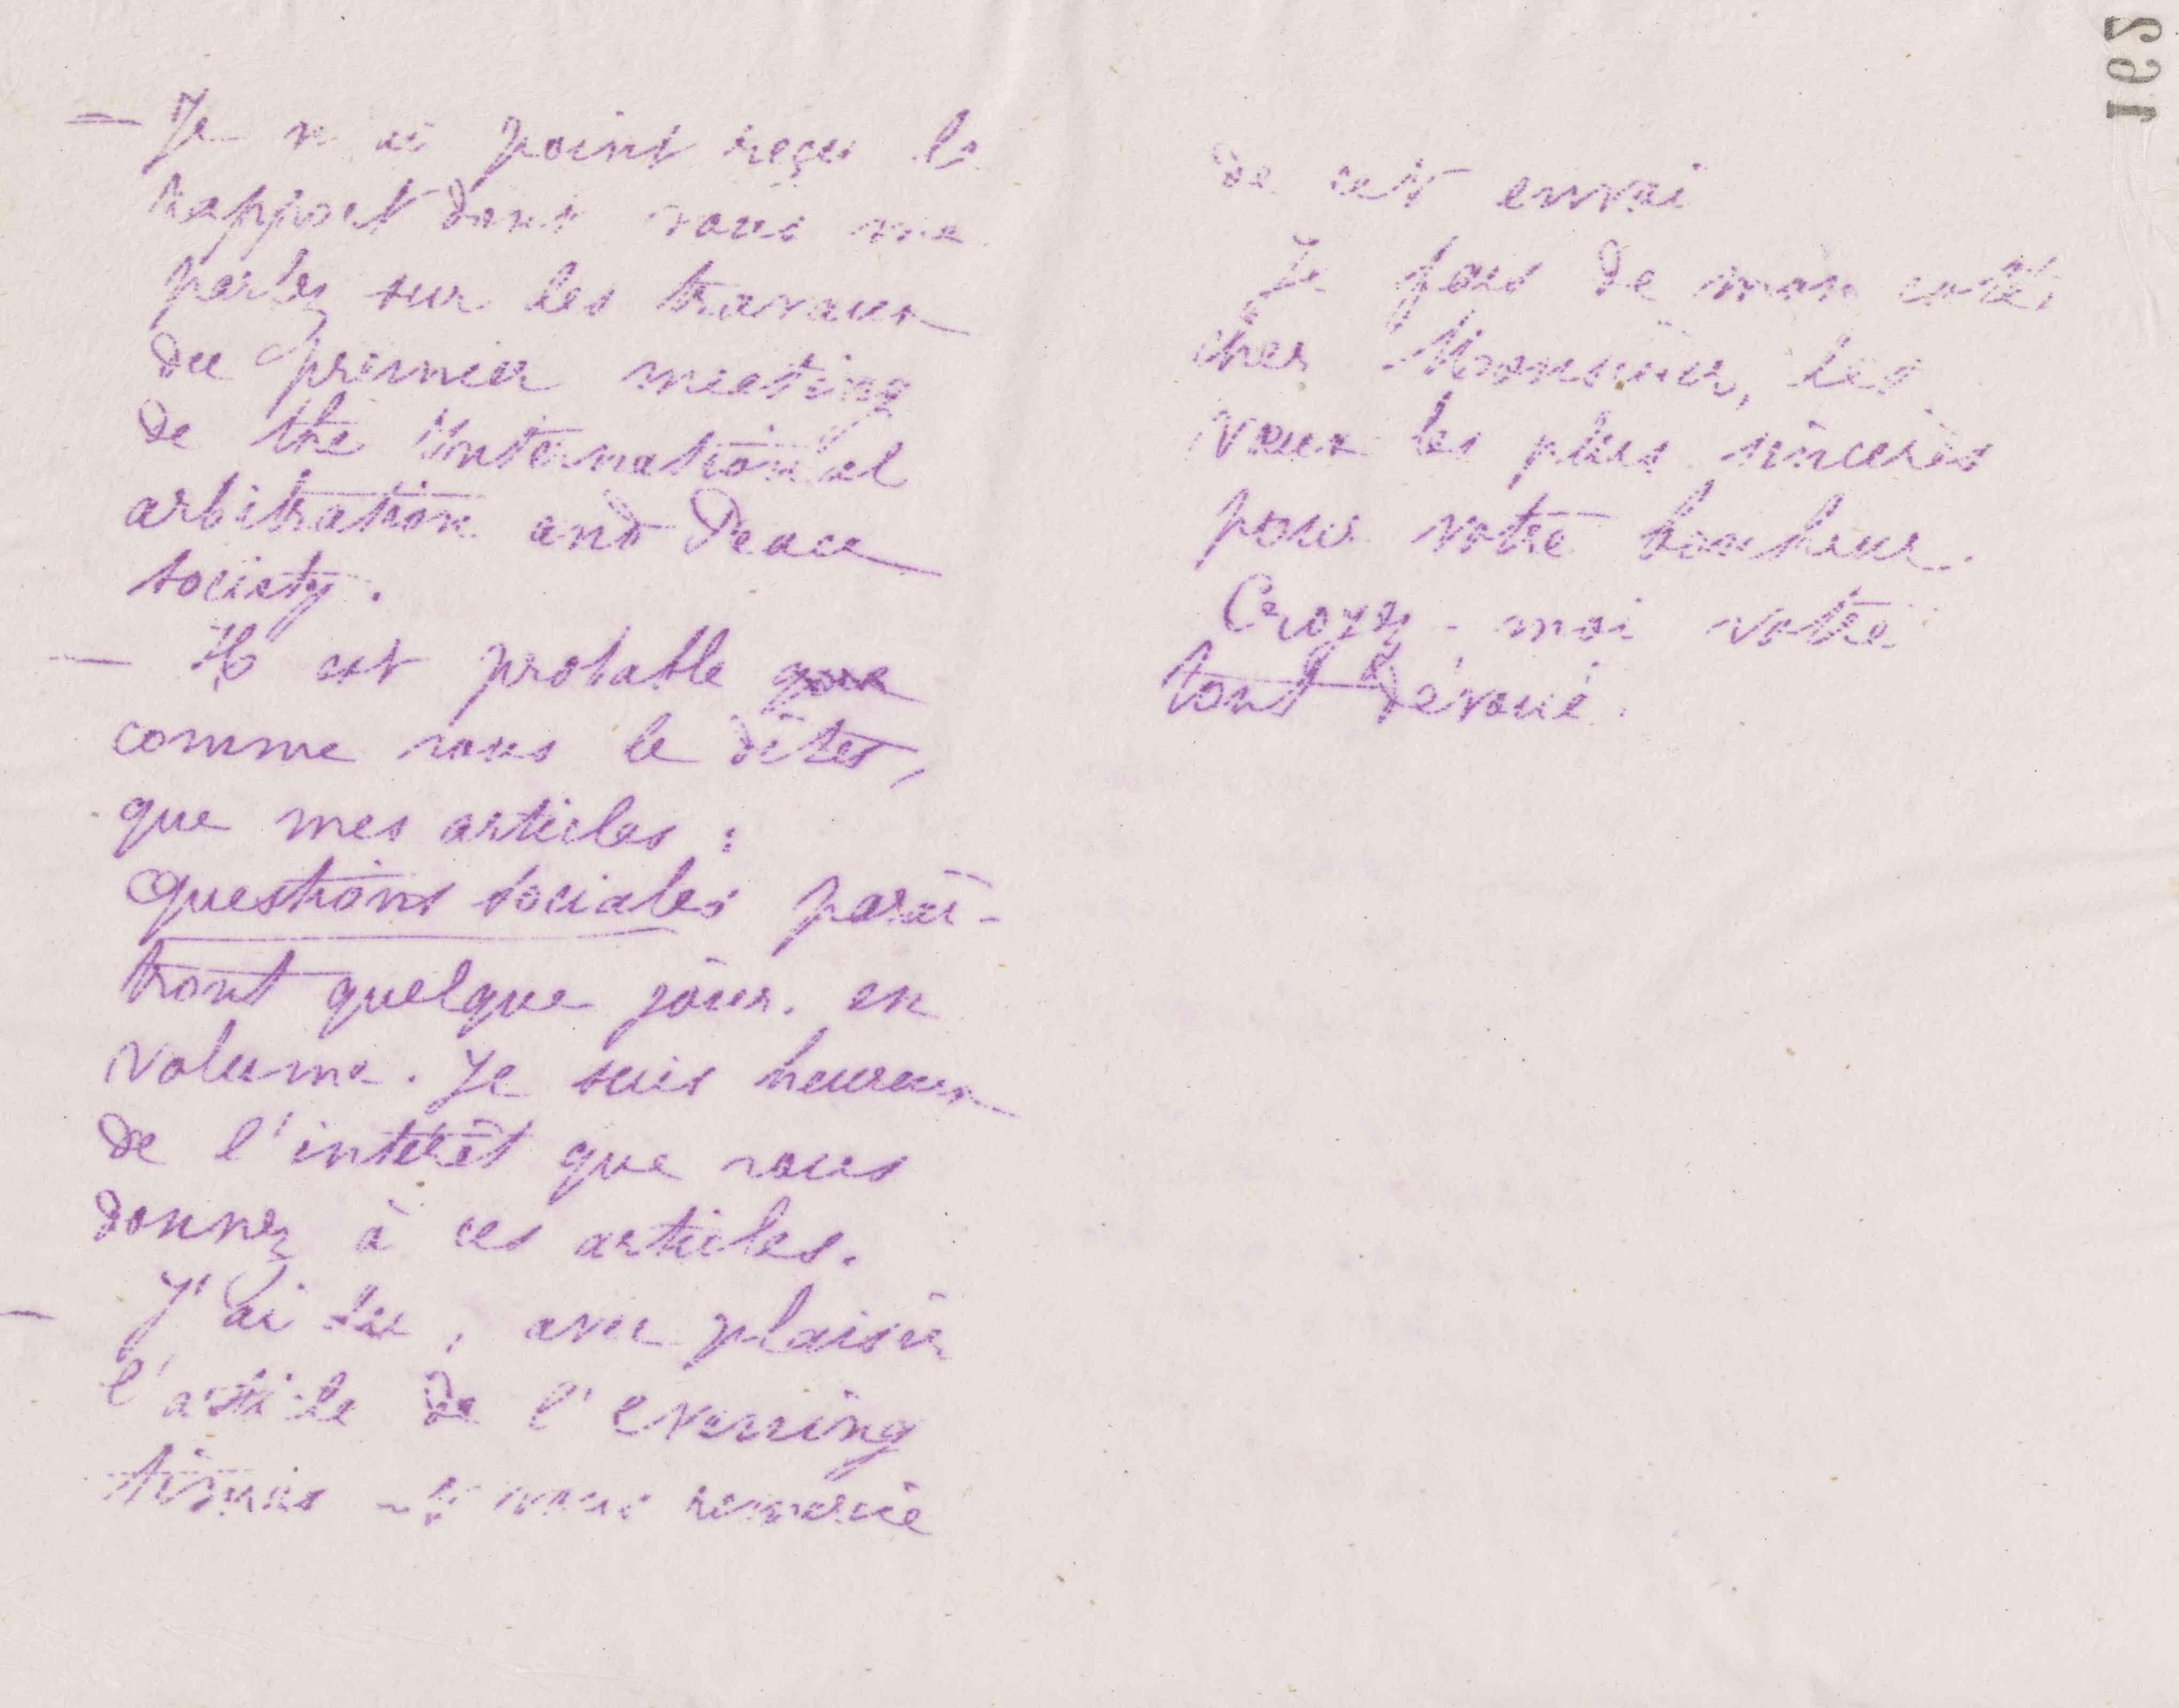 — Je n'ai point reçu le
rapport dont vous me
parlez sur les travaux
du premier meeting
de the International
arbitration and Peace
society.
— Il est probable que
comme vous le dites,
que mes articles :
Questions sociales paraî-
tront quelque jour en
volume. Je suis heureux
de l'intérêt que vous
donnez à ces articles.
— J'ai lu, avec plaisir
l'article de l'evening
times et vous remercie
de cet envoi
Je fais de mon côté,
cher Monsieur, les
vœux les plus sincères
pour votre bonheur.
Croyez-moi votre
tout dévoué.
162